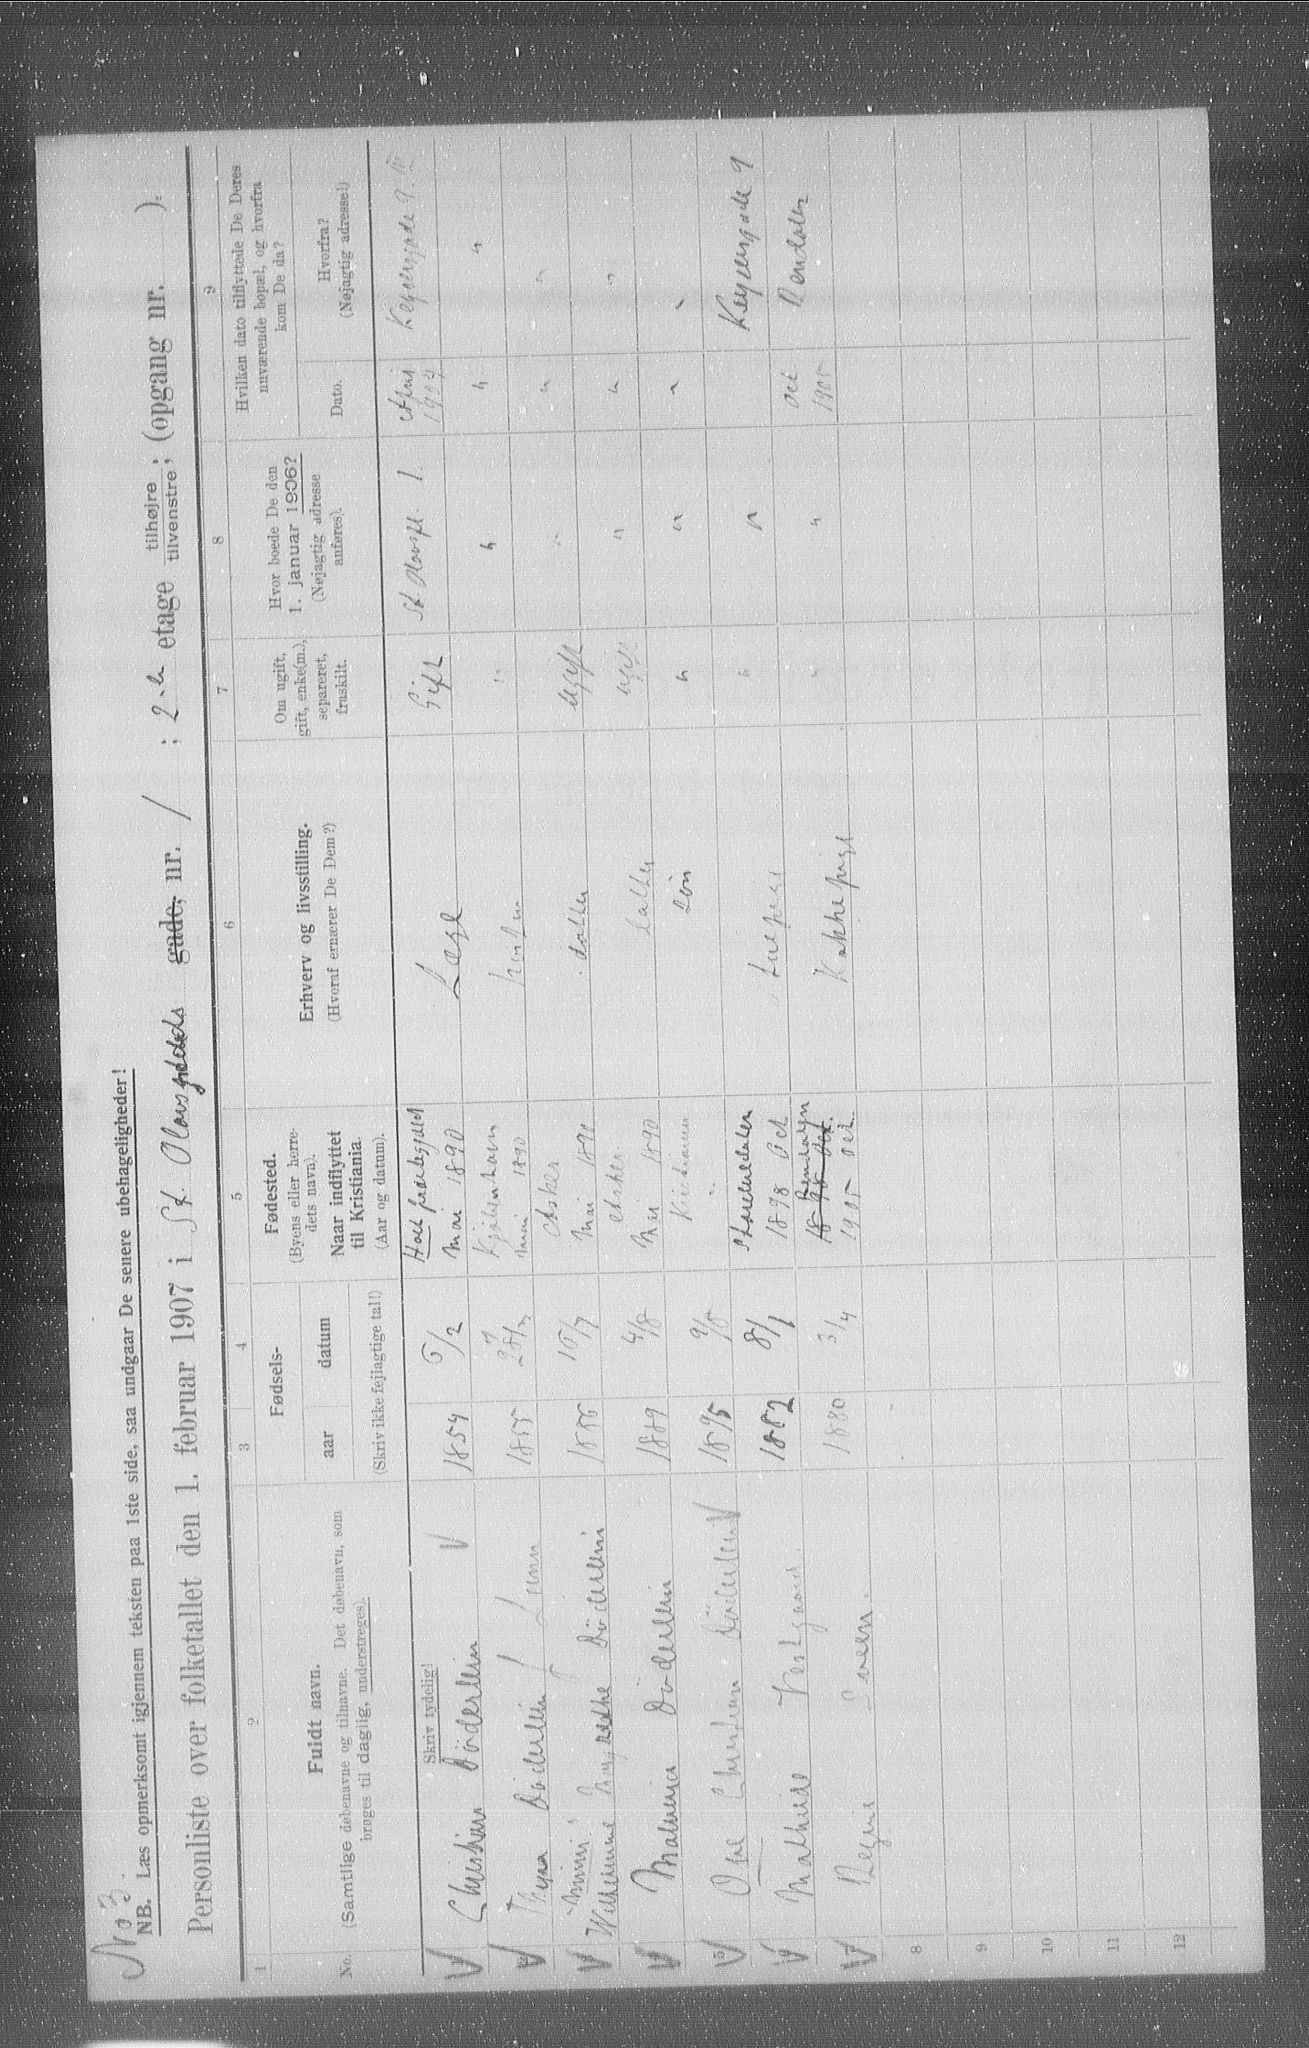 No 3.
NB. Læs opmerksomt igjennem teksten paa 1ste side, saa undgaar De senere ubehageligheder!
Personliste over folketallet den 1. februar 1907 i St. Olavs gade, nr. 1 ; 2 etage tilhøjre, tilvenstre; (opgang nr. ).
1 2 3 4 5 6 7 8 9
No. Fuldt navn.
(Samtlige døbenavne og tilnavne. Det døbenavn, som
bruges til daglig, understreges).
Fødsels-
aar datum
(Skriv ikke fejlagtige tal!)
Fødested.
(Byens eller herre-
dets navn).
Naar indflyttet
til Kristiania.
(Aar og datum).
Erhverv og livsstilling.
(Hvoraf ernærer De Dem?)
Om ugift,
gift, enke(m.),
separeret,
fraskilt.
Hvor boede De den
1. januar 1906?
(Nøjagtig adresse
anføres).
Hvilken dato tilflyttede De Deres
nuværende bopæl, og hvorfra
kom De da?
Dato.
Hvorfra?
(Nøjagtig adresse!)
Skriv tydelig!
Christian Döderlein 1854 6/2 Mai 1890 Læge Gift St. Olavspl. 1. Keysersgade 9
Thyra Döderlein 1855 Kjøbenhavn Mai 1890 " " " "
Wilhelmine Döderlein Asker Mai 1890 datter Ugift " " "
Döderlein 1889 4/8 Asker Mai 1890 datter ugift " " "
Christian Döderlein 1895 9/5 Kristiania søn " " " "
Mathilde Vestgaard 1882 8/1 1898 Oct " " Keysersgade 9
Regine Sveen. 1880 3/4 Rendalen 1905 Oct. Kokkepige " " Oct 1905 Rendalen
8
9
10
11
12